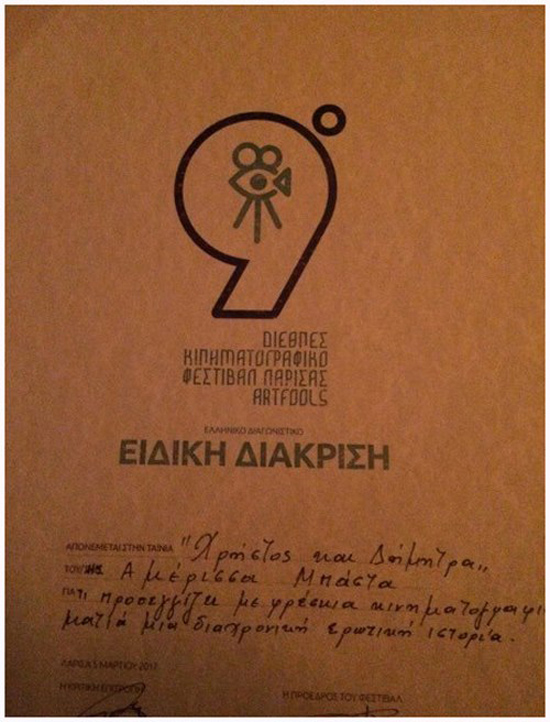 9°
ΔΙΕΘΝΕΣ
ΚΙΝΗΜΑΤΟΓΡΑΦΙΚΟ
ΦΕΣΤΙΒΑΛ ΛΑΡΙΣΑΣ
ARTFOOLS
ΕΛΛΗΝΙΚΟ ΔΙΑΓΩΝΙΣΤΙΚΟ
ΕΙΔΙΚΗ ΔΙΑΚΡΙΣΗ
ΑΠΟΝΕΜΕΤΑΙ ΣΤΗΝ ΤΑΙΝΙΑ "Χρήστος και Δήμητρα"
ΤΟΥ/ΤΗΣ Αμέρισσα Μπάστα
ΓΙΑΤΙ προσεγγίζει με φρέσκια κινηματογραφι
ματιά μια διαχρονική ερωτική ιστορία.
ΛΑΡΙΣΑ 5 ΜΑΡΤΙΟΥ 2017
Η ΚΡΙΤΙΚΗ ΕΠΙΤΡΟΠΗ Η ΠΡΟΕΔΡΟΣ ΤΟΥ ΦΕΣΤΙΒΑΛ